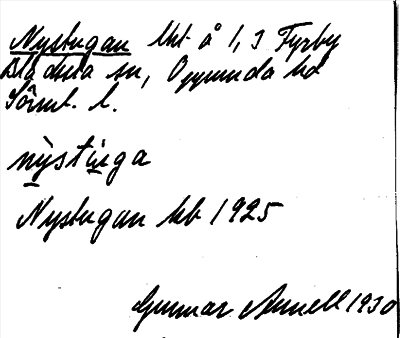 Nystugan lht å 1,3 Fyrby
Bladåka sn, Oppunda hd
Sörml. l.
nỳstùga
Nystugan kb 1925
Gunnar Annell 1930